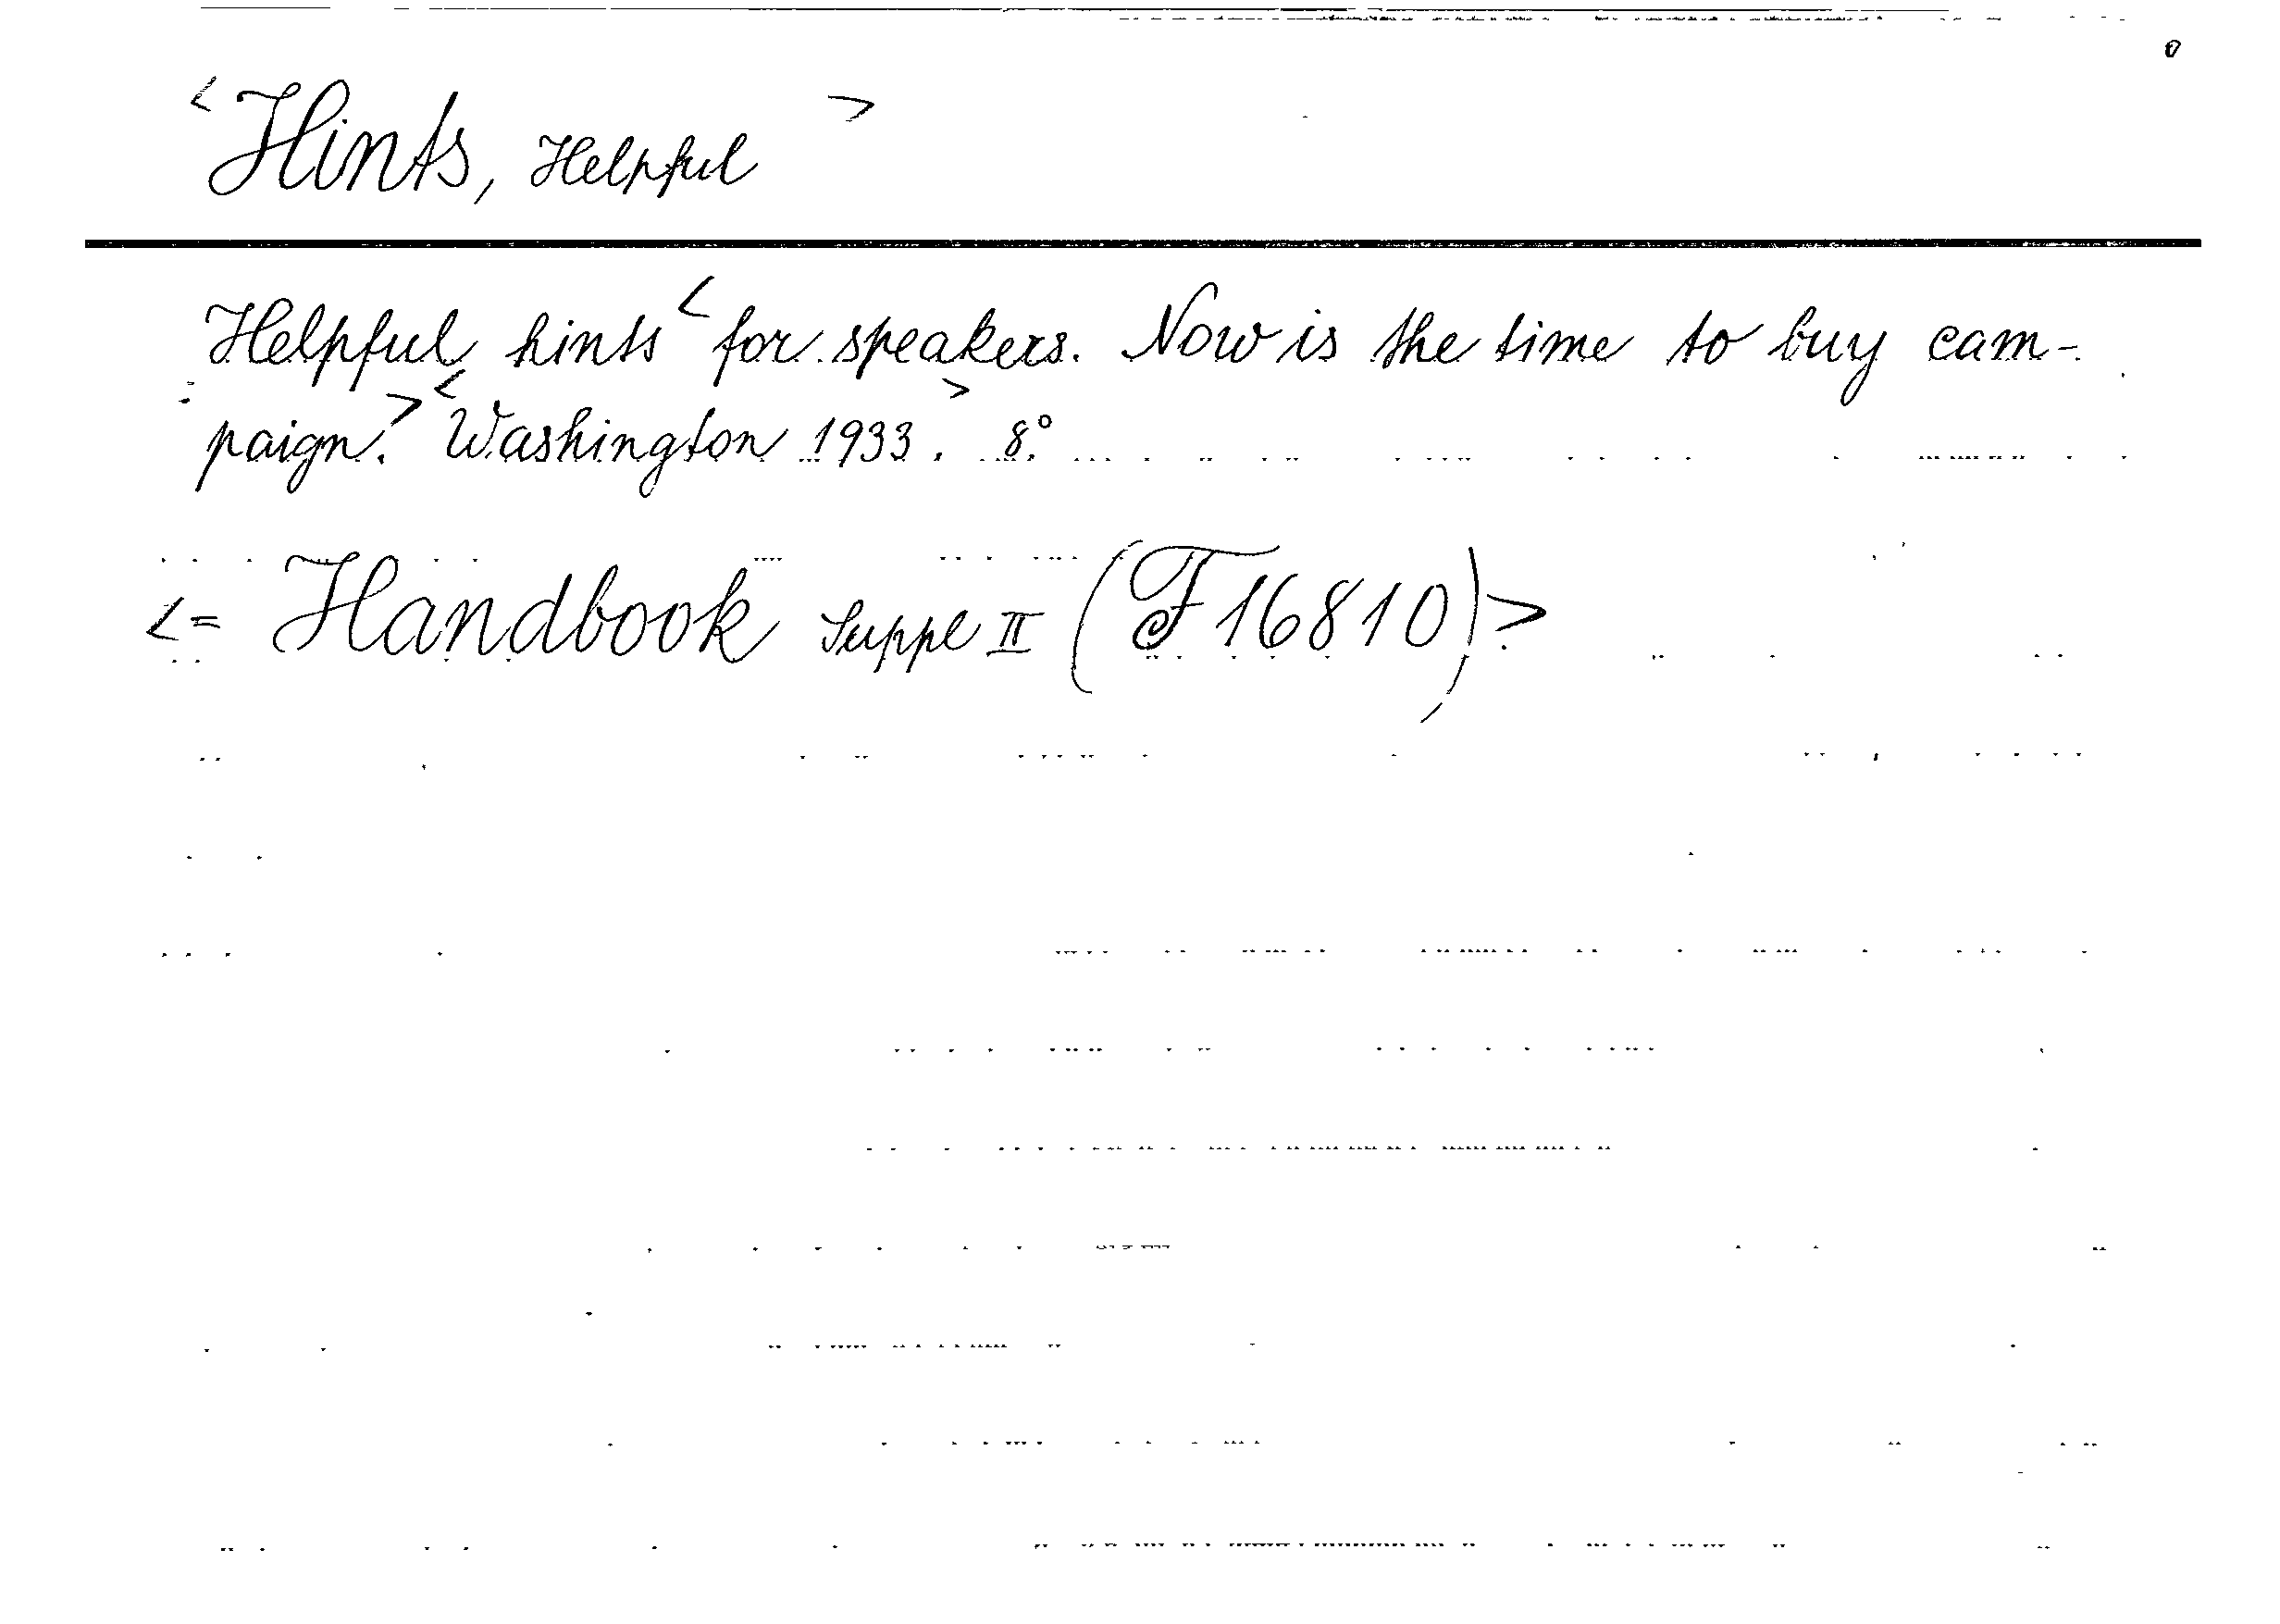 <Hints, Helpful>
Helpful hints <for speakers. Now is the time to buy cam-
paign.> <Washington 1933>. 8°.
<= Handbook Suppl II (F 16810)>.